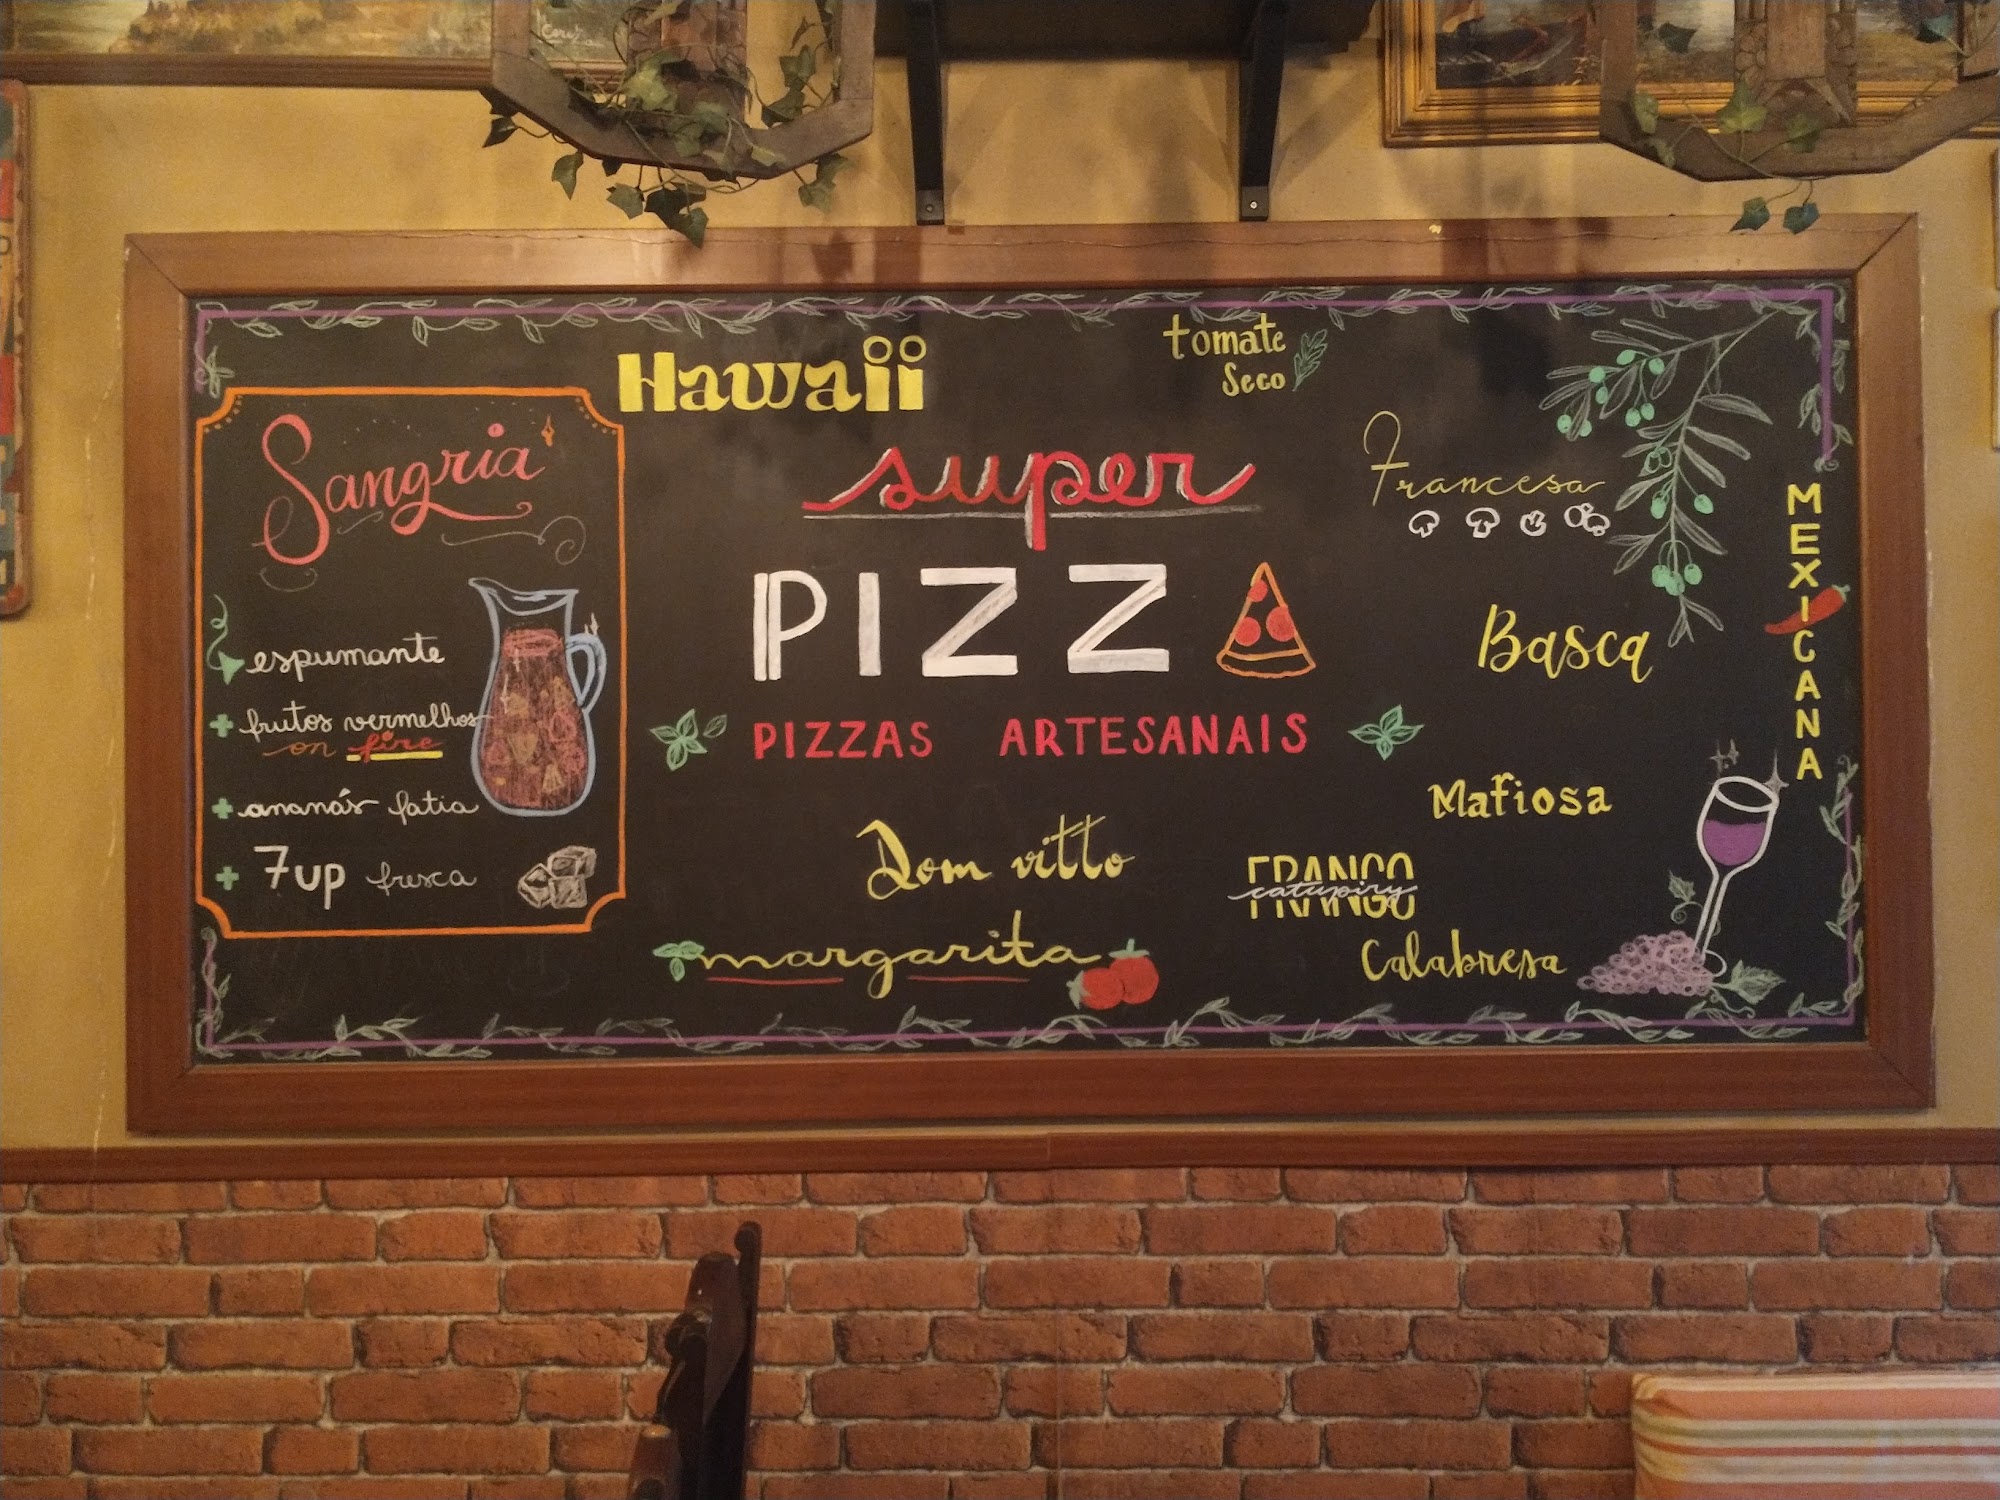 Sangria
espumante
+ frutos vermelhos
on fire
+ ananás fatia
+ 7up fresca
Hawaii
tomate
seco
super
PIZZ
PIZZAS ARTESANAIS
Francesa
MEXICANA
Basca
Mafiosa
Dom vitto
FRANGO
catupiry
margarita
Calabresa